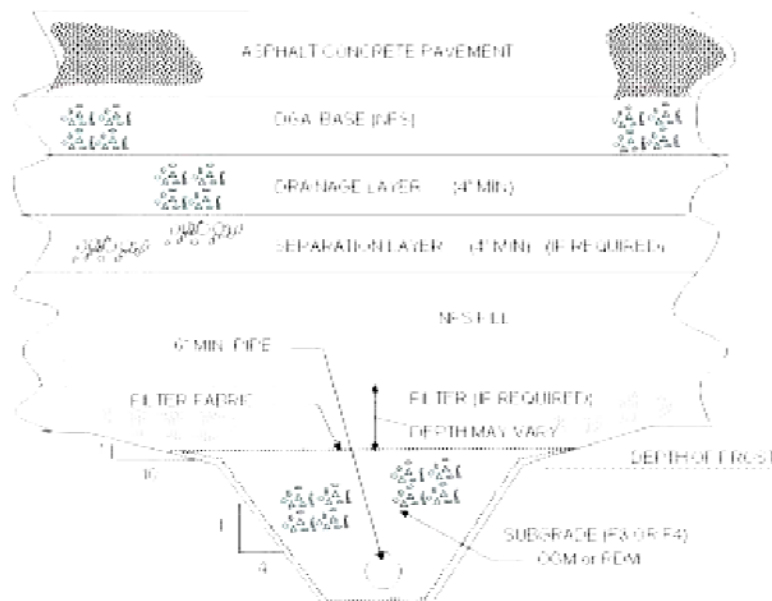 ASPHALT CONCRETE PAVEMENT
DGA BASE (NFS)
DRAINAGE LAYER (4" MIN)
SEPARATION LAYER (4" MIN) (IF REQUIRED)
NFS FILL
6" MIN. PIPE
FILTER FABRIC
FILTER (IF REQUIRED)
DEPTH MAY VARY
DEPTH OF FROST
1
10
1
SUBGRADE (F3 OR F4)
OGM or RDM